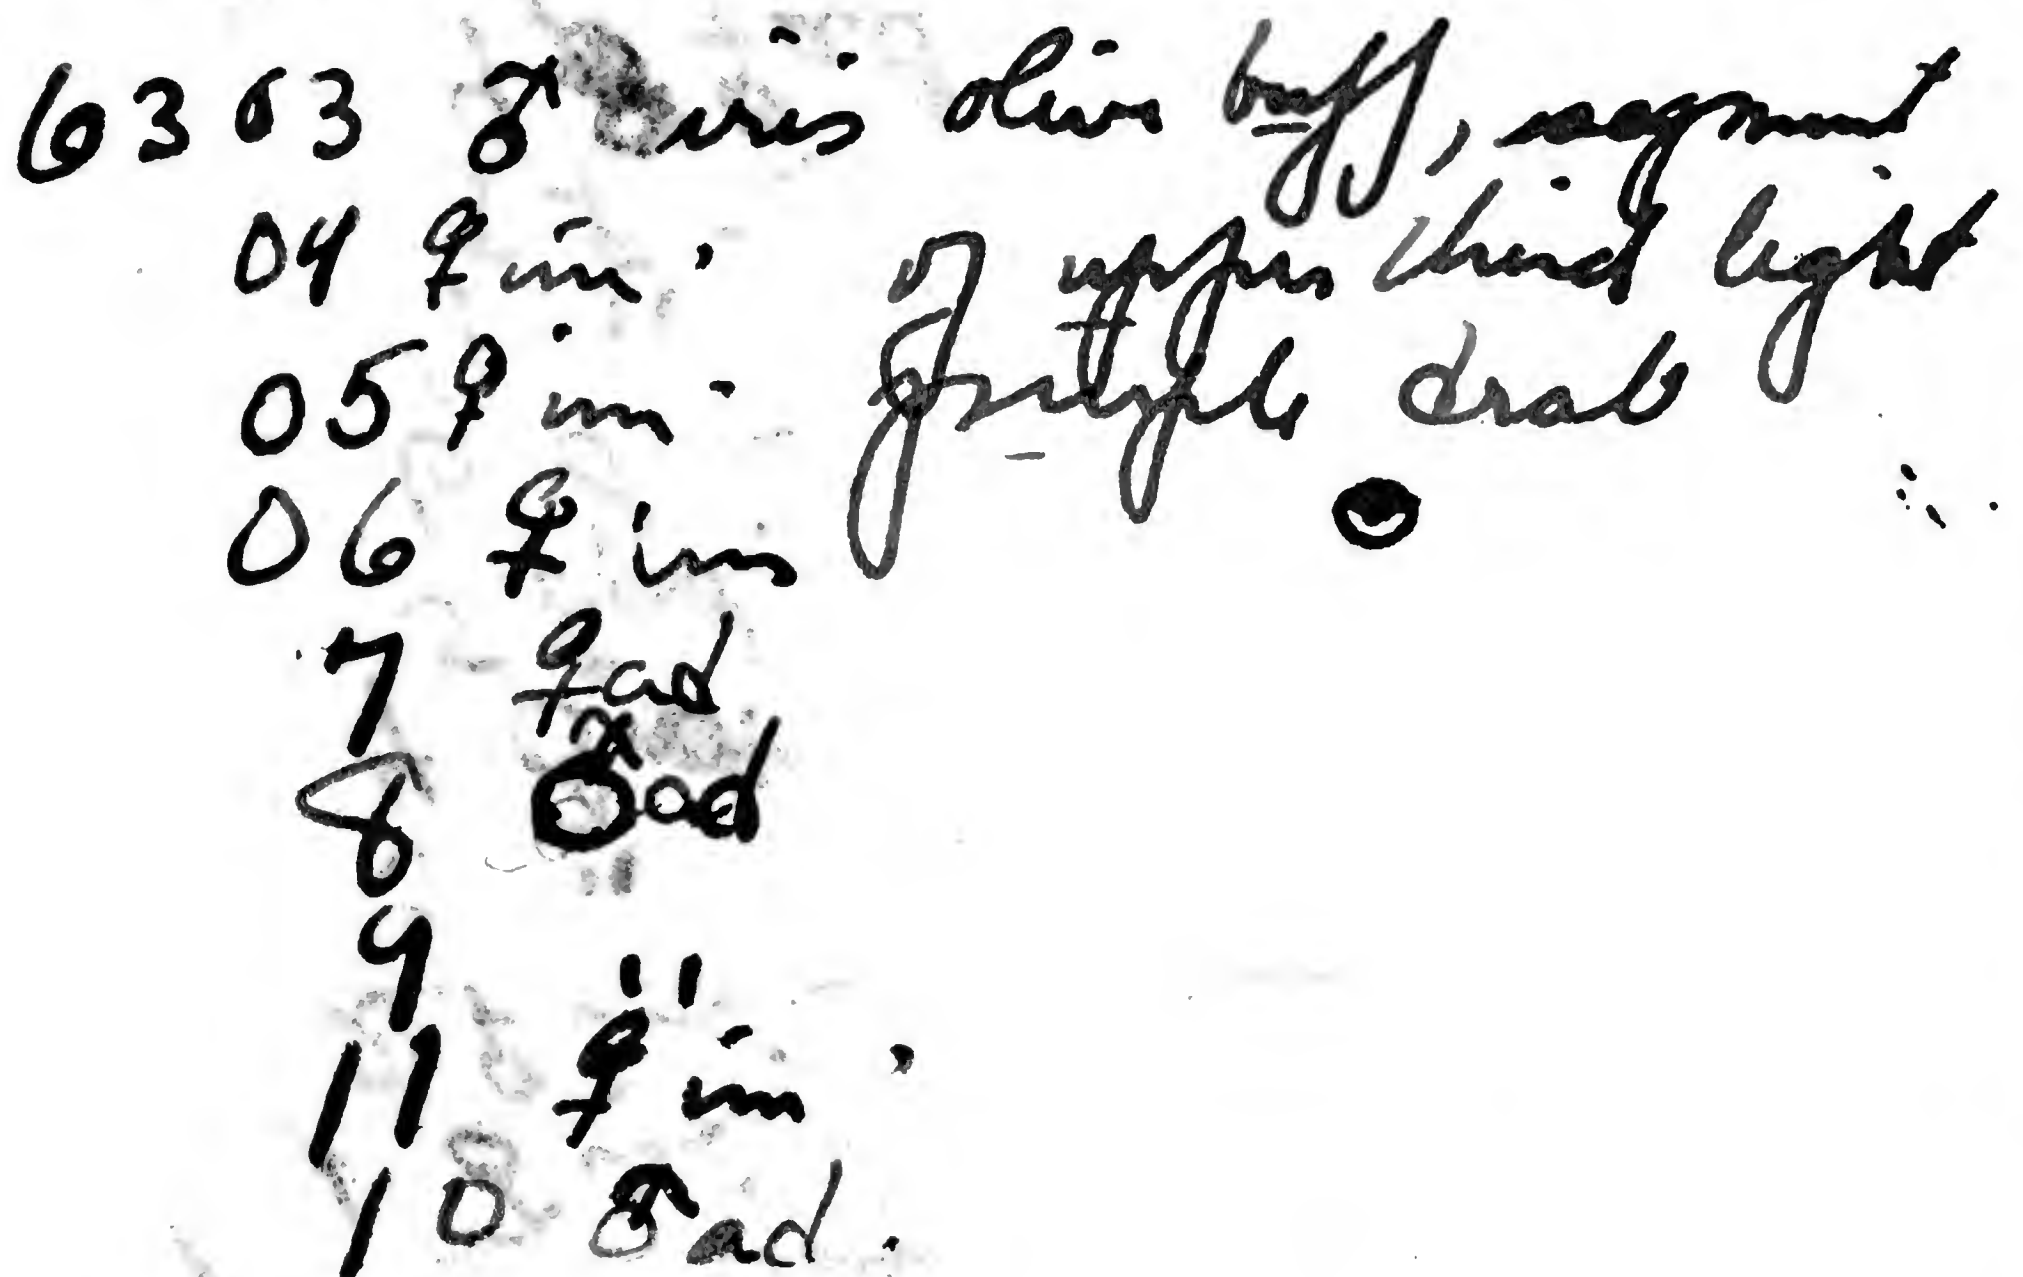 6303 ♂ iris olive buff, segment
04 ♀ im. of upper third light
05 ♀ im. drab
06 ♀ im
7 ♀ ad
8 ♂ ad
9 "
11 ♀ im.
10 ♂ ad.